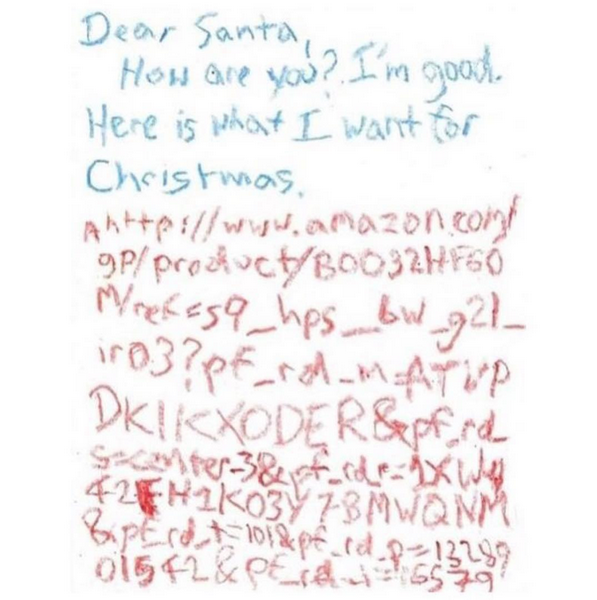 Dear Santa,
How are you? I'm good.
Here is what I want for
Christmas.
A http://www.amazon.com/
gp/product/B0032HF60
M/ref=s9_hps_bw_g21_
ir03?pf_rd_m=ATVP
DKIKX0DER&pf_rd_
s=center-3&pf_rdr=1XWW
42FH1K03Y78MWQNM
&pf_rd_t=101&pf_rd_p=13289
01542&pf_rd_i=16579